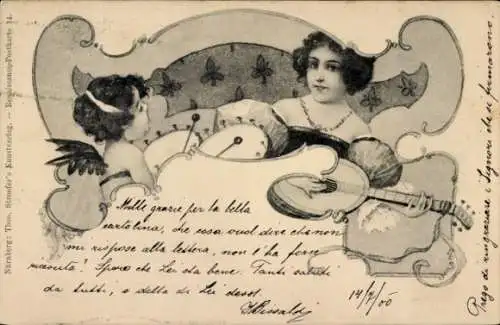 Nürnberg: Theo. Stroefer's Kunstverlag. — Renaissance-Postkarte 14.
Mille grazie per la bella
cartolina, che cosa vuol dire che non
mi rispose alla lettera, non l'ha forse
ricevuta? Spero che Lei sta bene. Tanti saluti
da tutti, e della di Lei
14/7/00
Prego di ringraziare i Signori che si firmarono.